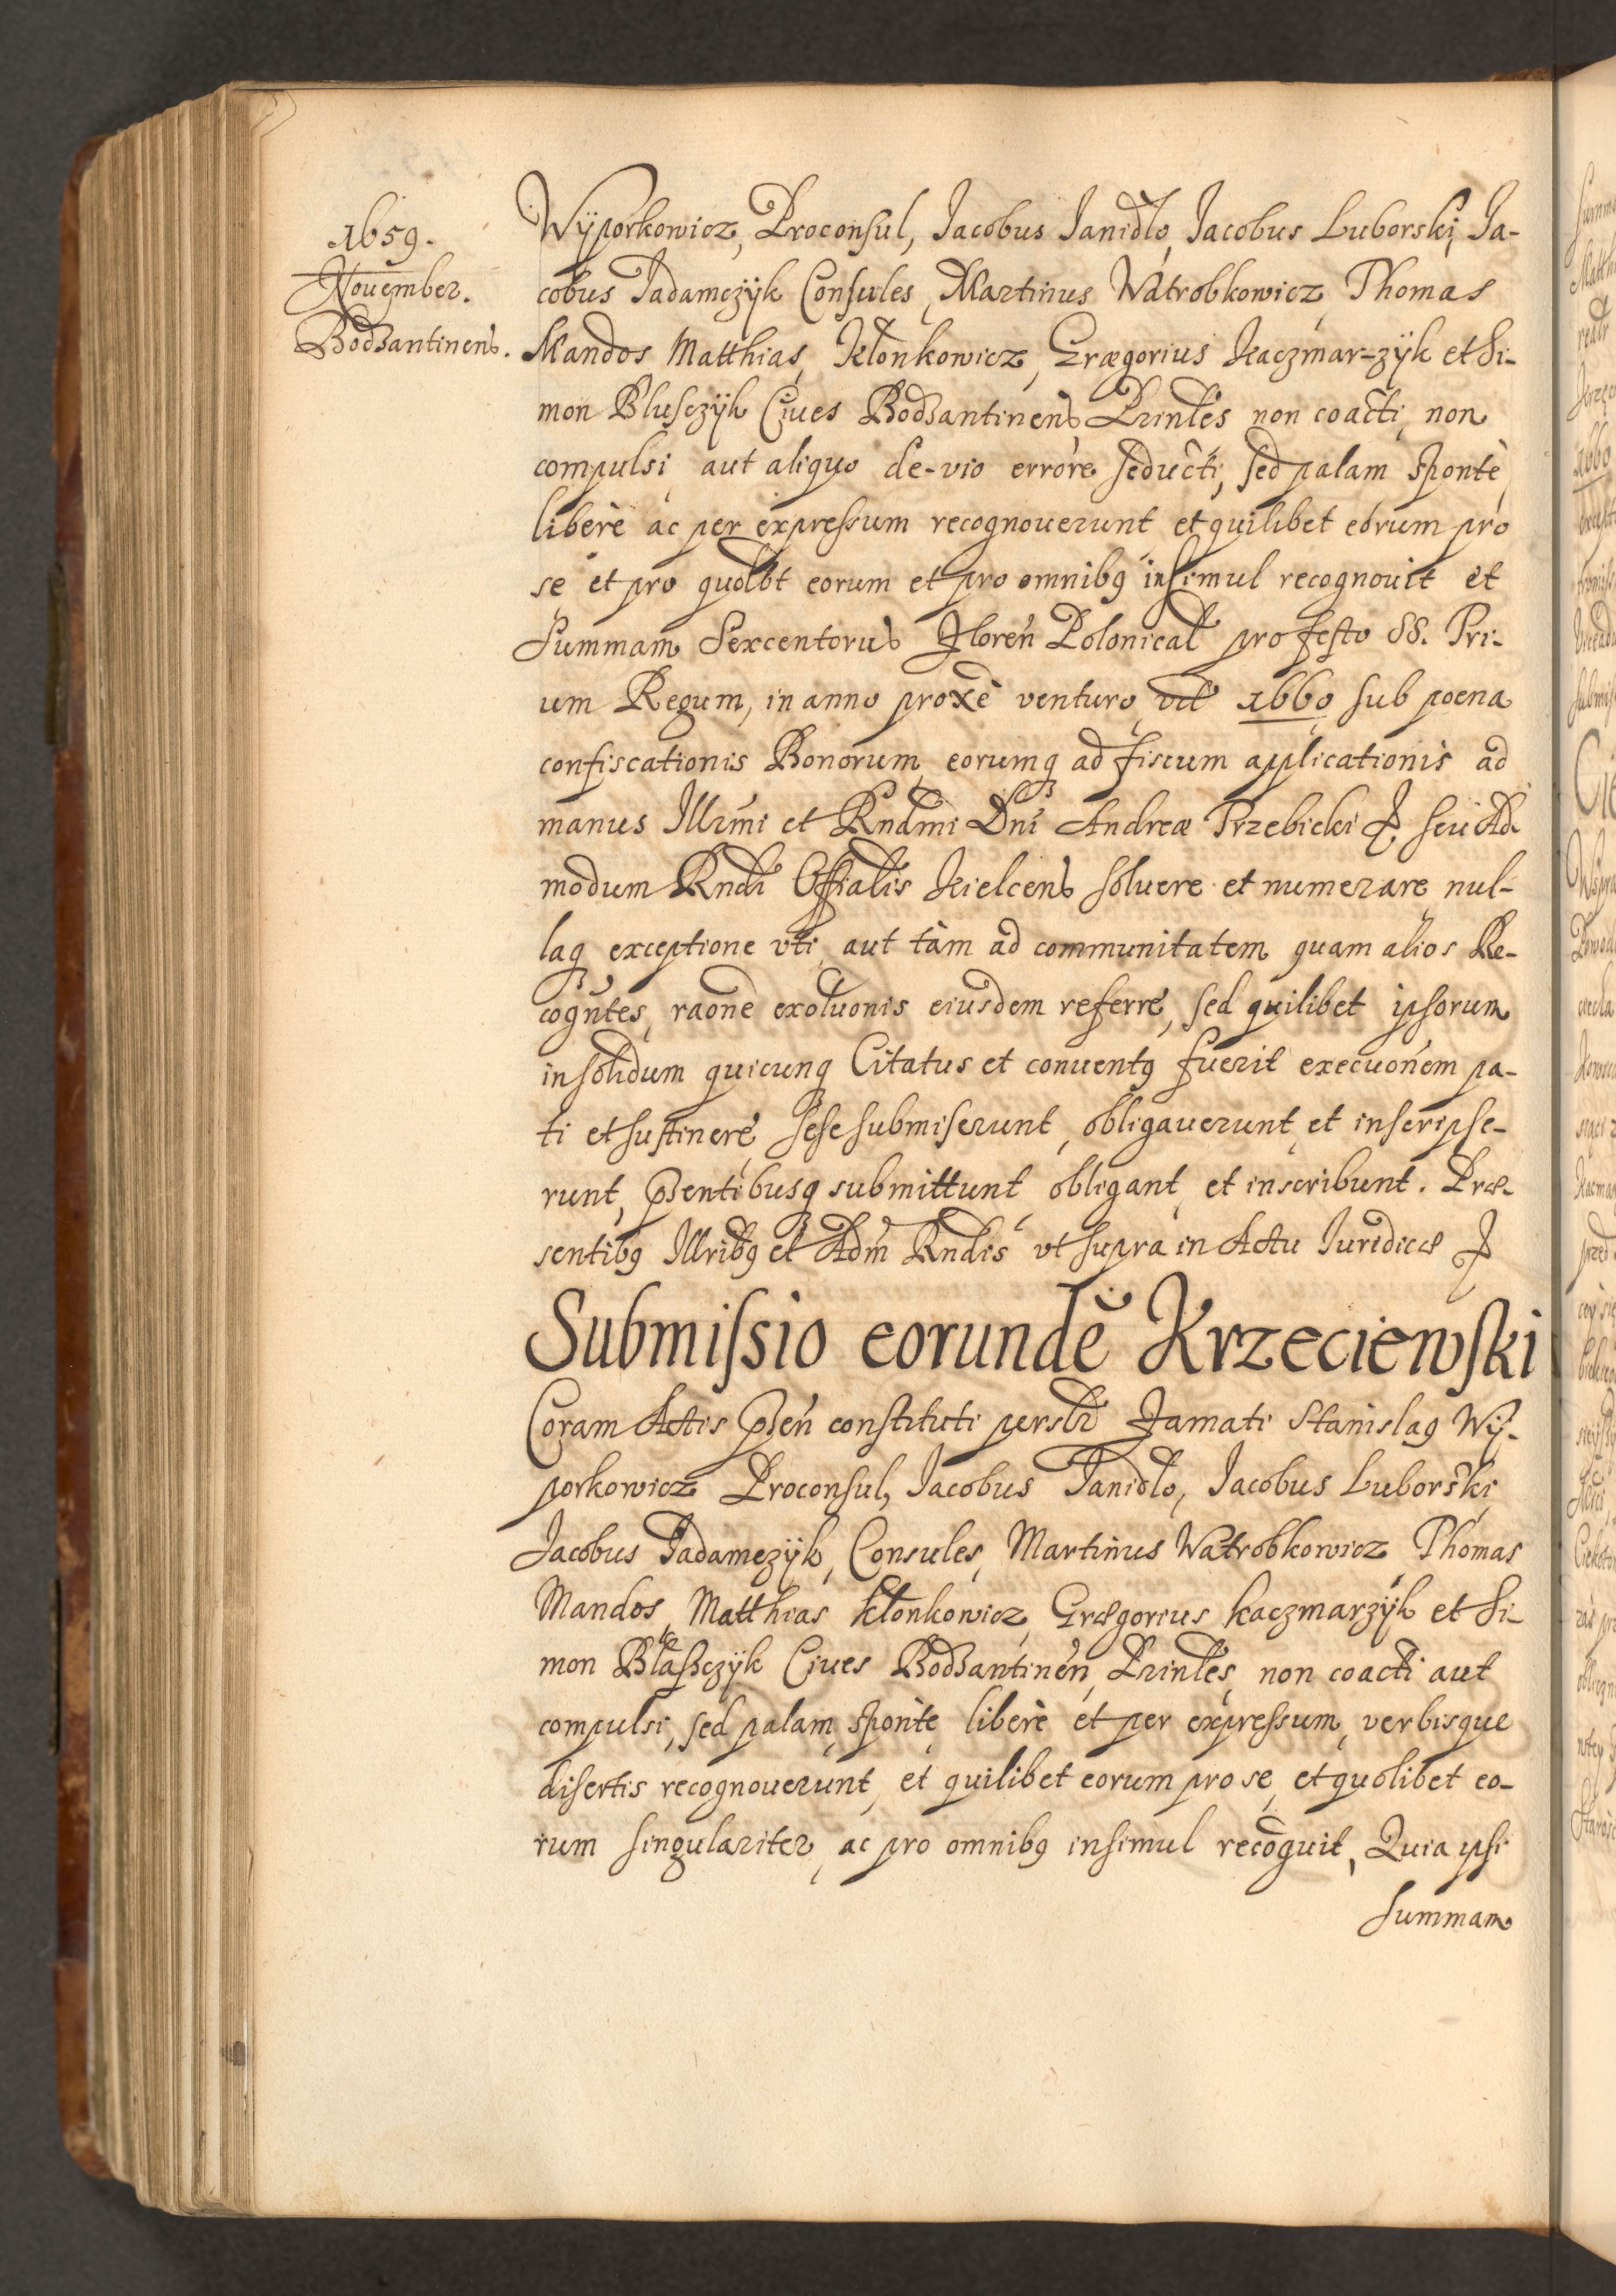 1659.
Nouember.
Bodzantinens.
Wyporkowicz, Proconsul, Jacobus Janidlo, Jacobus Luborski, Ja-
cobus Jadamczÿk Consules, Martinus Watrobkowicz, Thomas
Mandos Matthias, Klonkowicz, Græegorius Kaczmar-zÿk et Si-
mon Blusczÿk Ciues Bodzantinens Printes non coacti, non
compulsi aut aliquo de-vio errore seducti, sed palam spontè,
liberè ac per expressum recognouerunt et quilibet eorum pro
se et pro quolbt eorum et pro omnibq insimul recognouit et
Summam Sexcentorus Floren Polonical pro festo SS. Tri-
um Regum, in anno proxè venturo, vit 1660 sub poena
confiscationis Bonorum, eorumq ad fiscum applicationis ad
manus Illrmi et Rndmi Dni Andreæ Trzebicki & seu Ad-
modum Rndi Offialis Kielcens soluere et numerare, nul-
laq exceptione vti, aut tàm ad communitatem, quam alios Re-
cogntes, raone exoluonis eiusdem referre, sed quilibet ipsorum
in solidum quicunq Citatus et conuentq fuerit execuonem pa-
ti et sustinere, sese submiserunt, obligauerunt, et inscripse-
runt, pzentibusq submittunt, obligant, et inscribunt. Præ-
sentibq Illribq et Adm Rndis vt supra in Actu Iuridico &
Submissio eorundē Krzeciewski
Coram Actis pzen constituti persłr Famati Stanislaq Wÿ-
porkowicz Proconsul, Jacobus Janidlo, Jacobus Luborski,
Jacobus Jadamczÿk, Consules, Martinus Watrobkowicz Thomas
Mandos, Matthias Klonkowicz, Græegorius kaczmarzÿk et Si-
mon Blasczÿk Ciues Bodzantinen, Printes, non coacti aut
compulsi, sed palam, spontè, liberè et per expressum, verbisque
disertis recognouerunt, et quilibet eorum pro se, et quolibet eo-
rum singulariter, ac pro omnibq insimul recoguit, Quia ipsi
summam